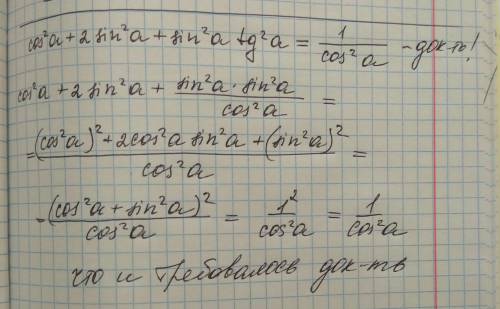 cos²a + 2 sin²a + sin²a tg²a = 1/cos²a - док-ть!
cos²a + 2 sin²a + sin²a · sin²a/cos²a =
= (cos²a)² + 2cos²a sin²a + (sin²a)²/cos²a =
- (cos²a + sin²a)²/cos²a = 1²/cos²a = 1/cos²a
что и требовалось док-ть